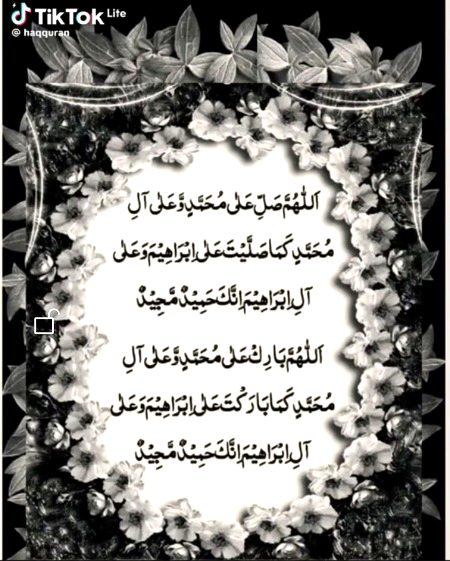 TikTok Lite
@ haqquran
اَللّٰهُمَّ صَلِّ عَلٰى مُحَمَّدٍ وَّعَلٰى آلِ
مُحَمَّدٍ كَمَا صَلَّيْتَ عَلٰى اِبْرَاهِيْمَ وَعَلٰى
آلِ اِبْرَاهِيْمَ اِنَّكَ حَمِيْدٌ مَّجِيْدٌ
اَللّٰهُمَّ بَارِكْ عَلٰى مُحَمَّدٍ وَّعَلٰى آلِ
مُحَمَّدٍ كَمَا بَارَكْتَ عَلٰى اِبْرَاهِيْمَ وَعَلٰى
آلِ اِبْرَاهِيْمَ اِنَّكَ حَمِيْدٌ مَّجِيْدٌ